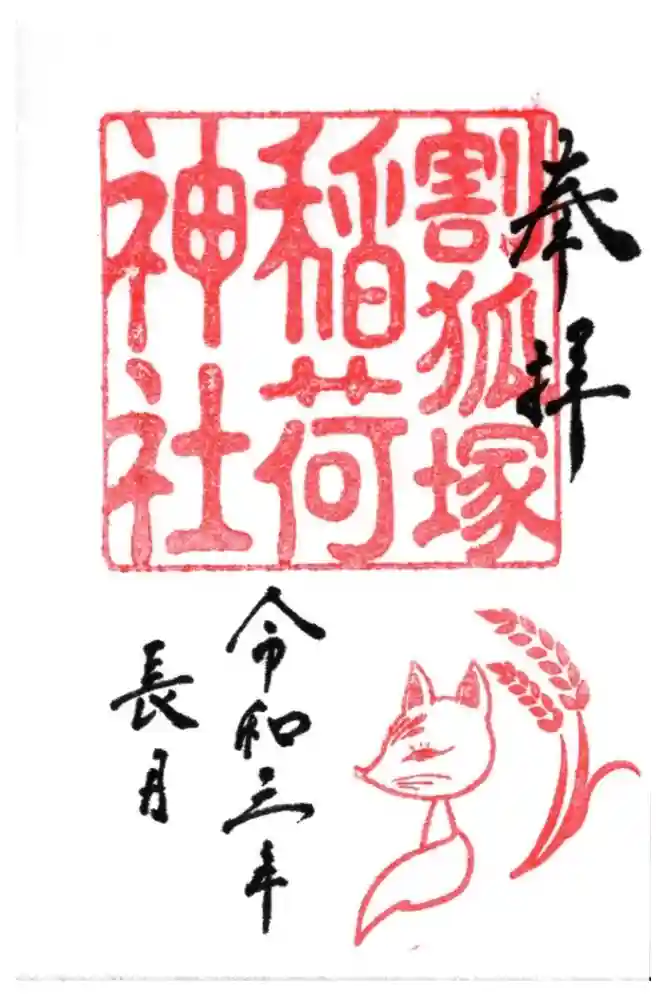 奉拝
割狐塚
稲荷
神社
令和三年
長月